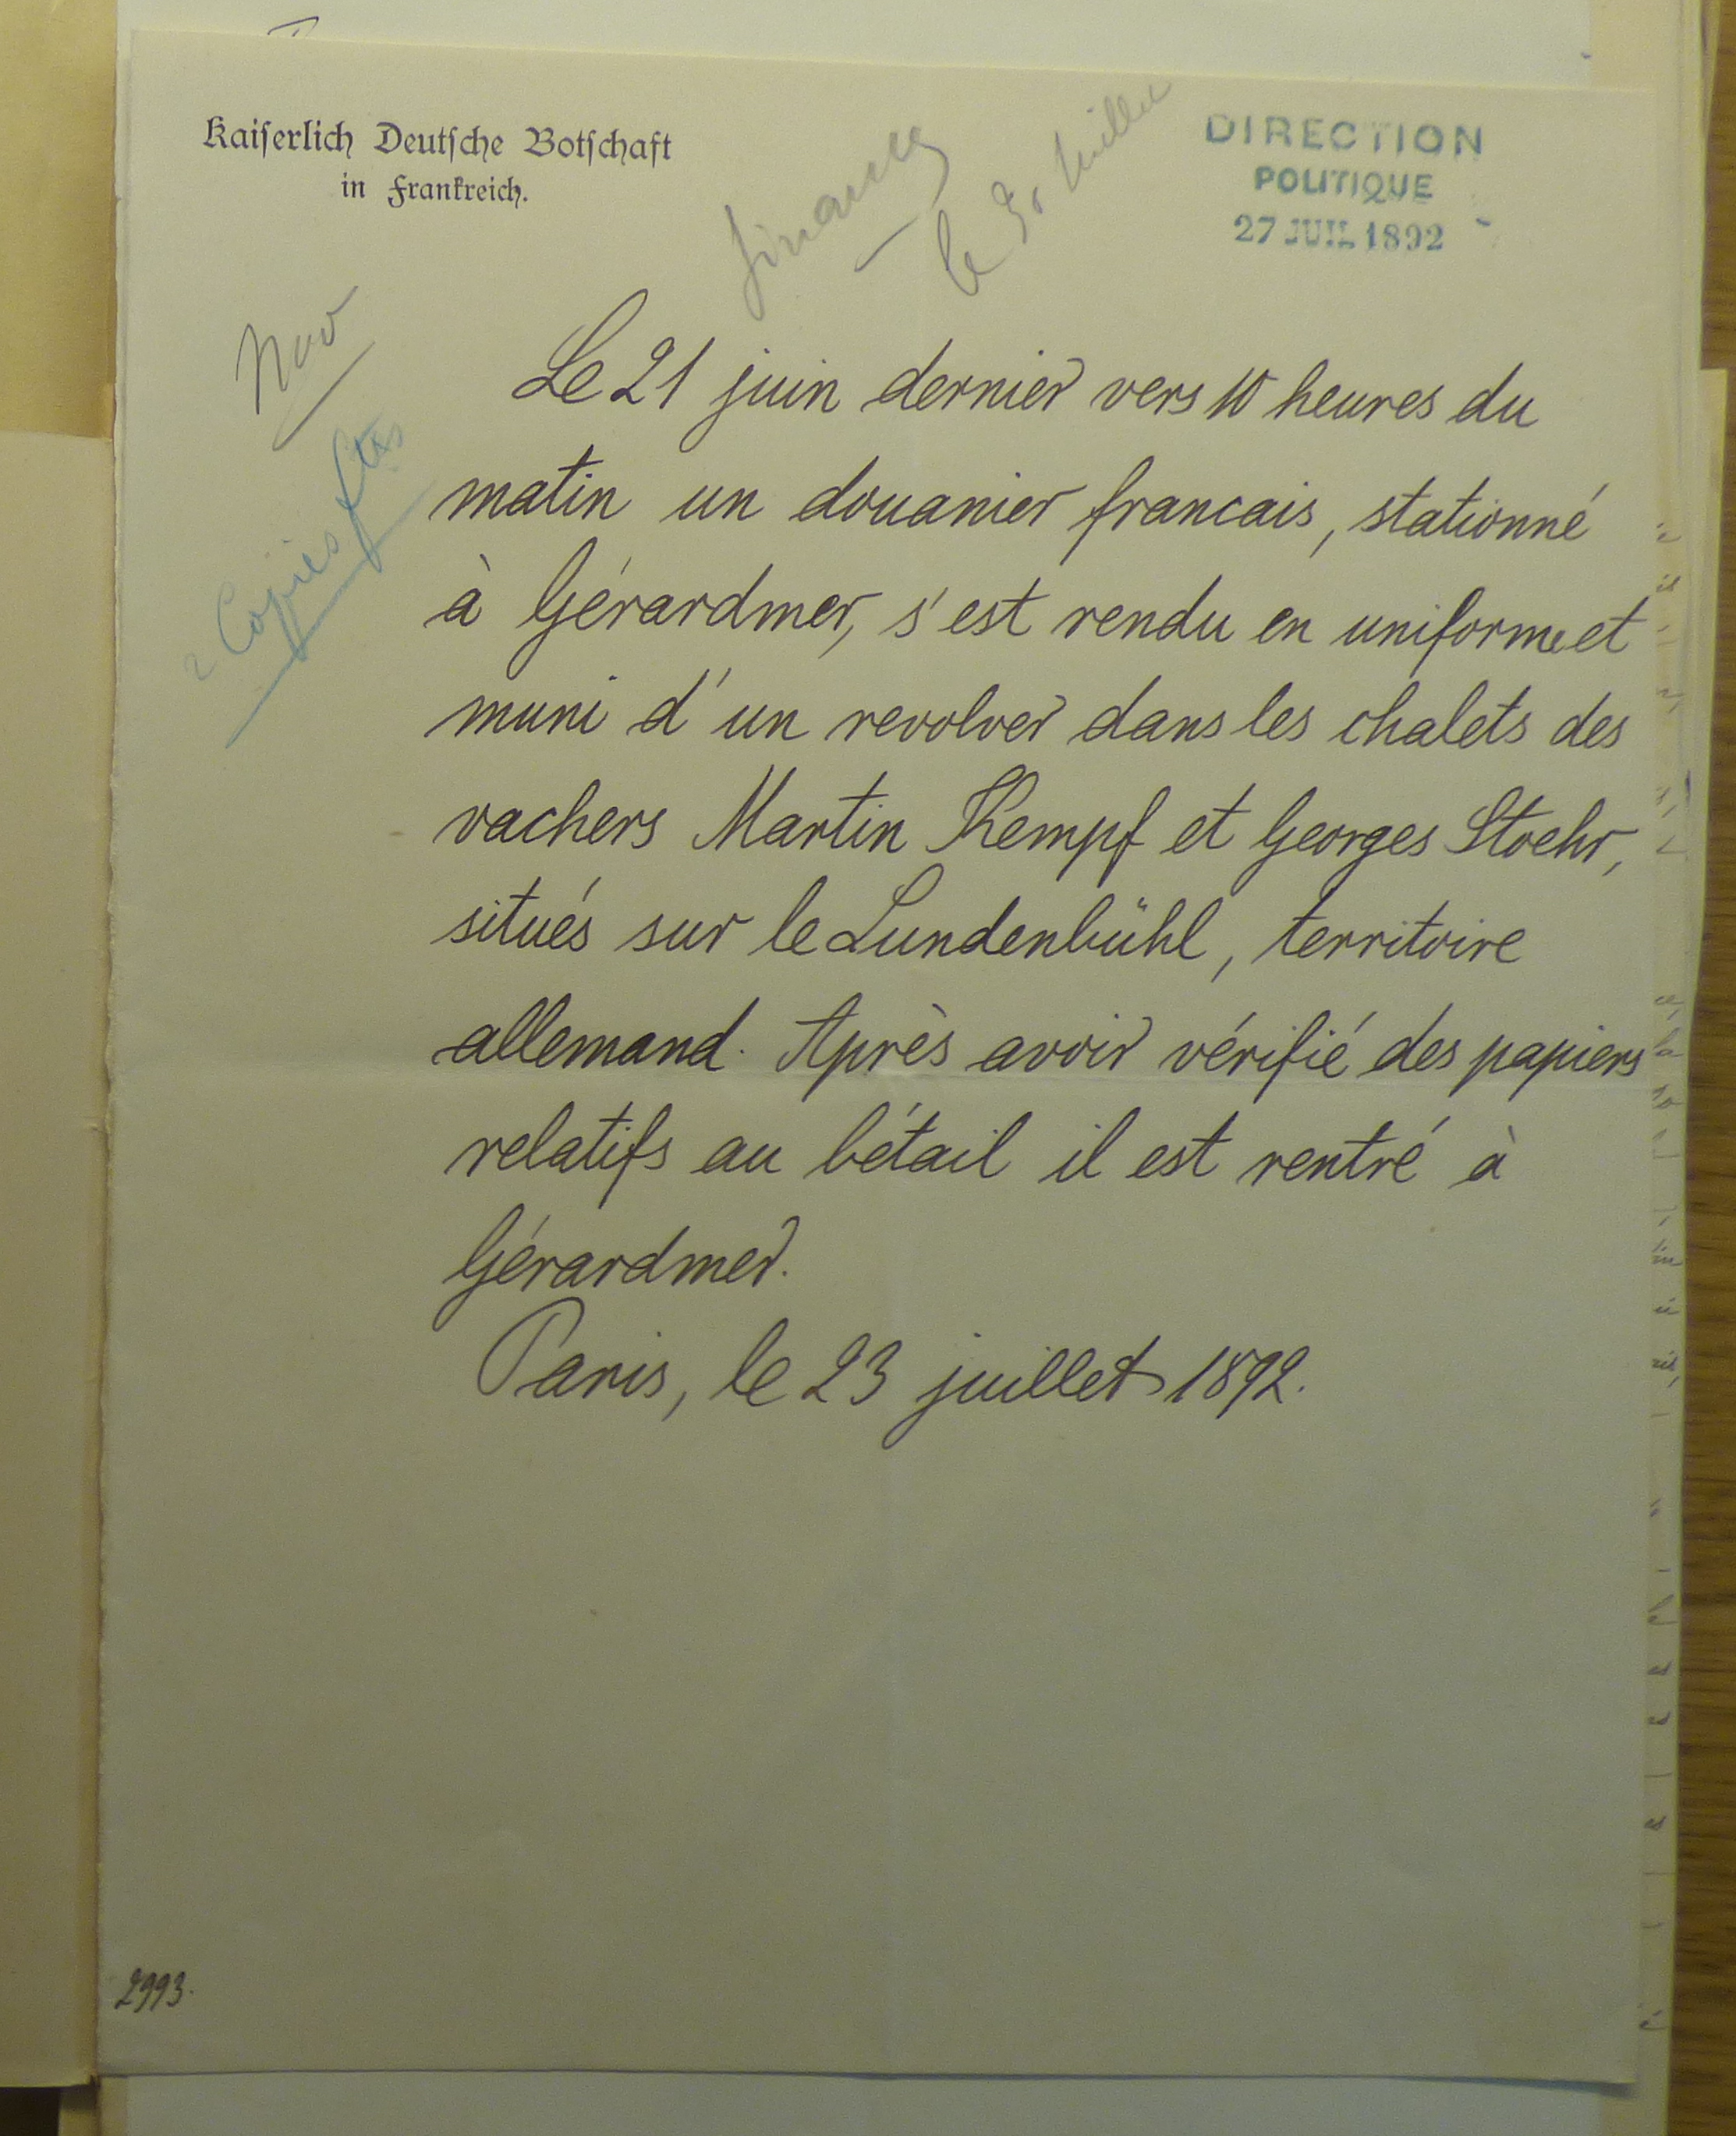 Kaiserlich Deutsche Botschaft
in Frankreich.
finances
le 30 Juillet
DIRECTION
POLITIQUE
27 JUIL 1892
2 Copies ftes
Le 21 juin dernier vers 10 heures du
matin un douanier francais, stationné
à Gérardmer, s'est rendu en uniforme et
muni d'un revolver dans les chalets des
vachers Martin Kempf et Georges Stoehr,
situés sur le Lundenbühl, territoire
allemand. Après avoir vérifié des papiers
relatifs au bétail il est rentré à
Gérardmer.
Paris, le 23 juillet 1892.
2993.